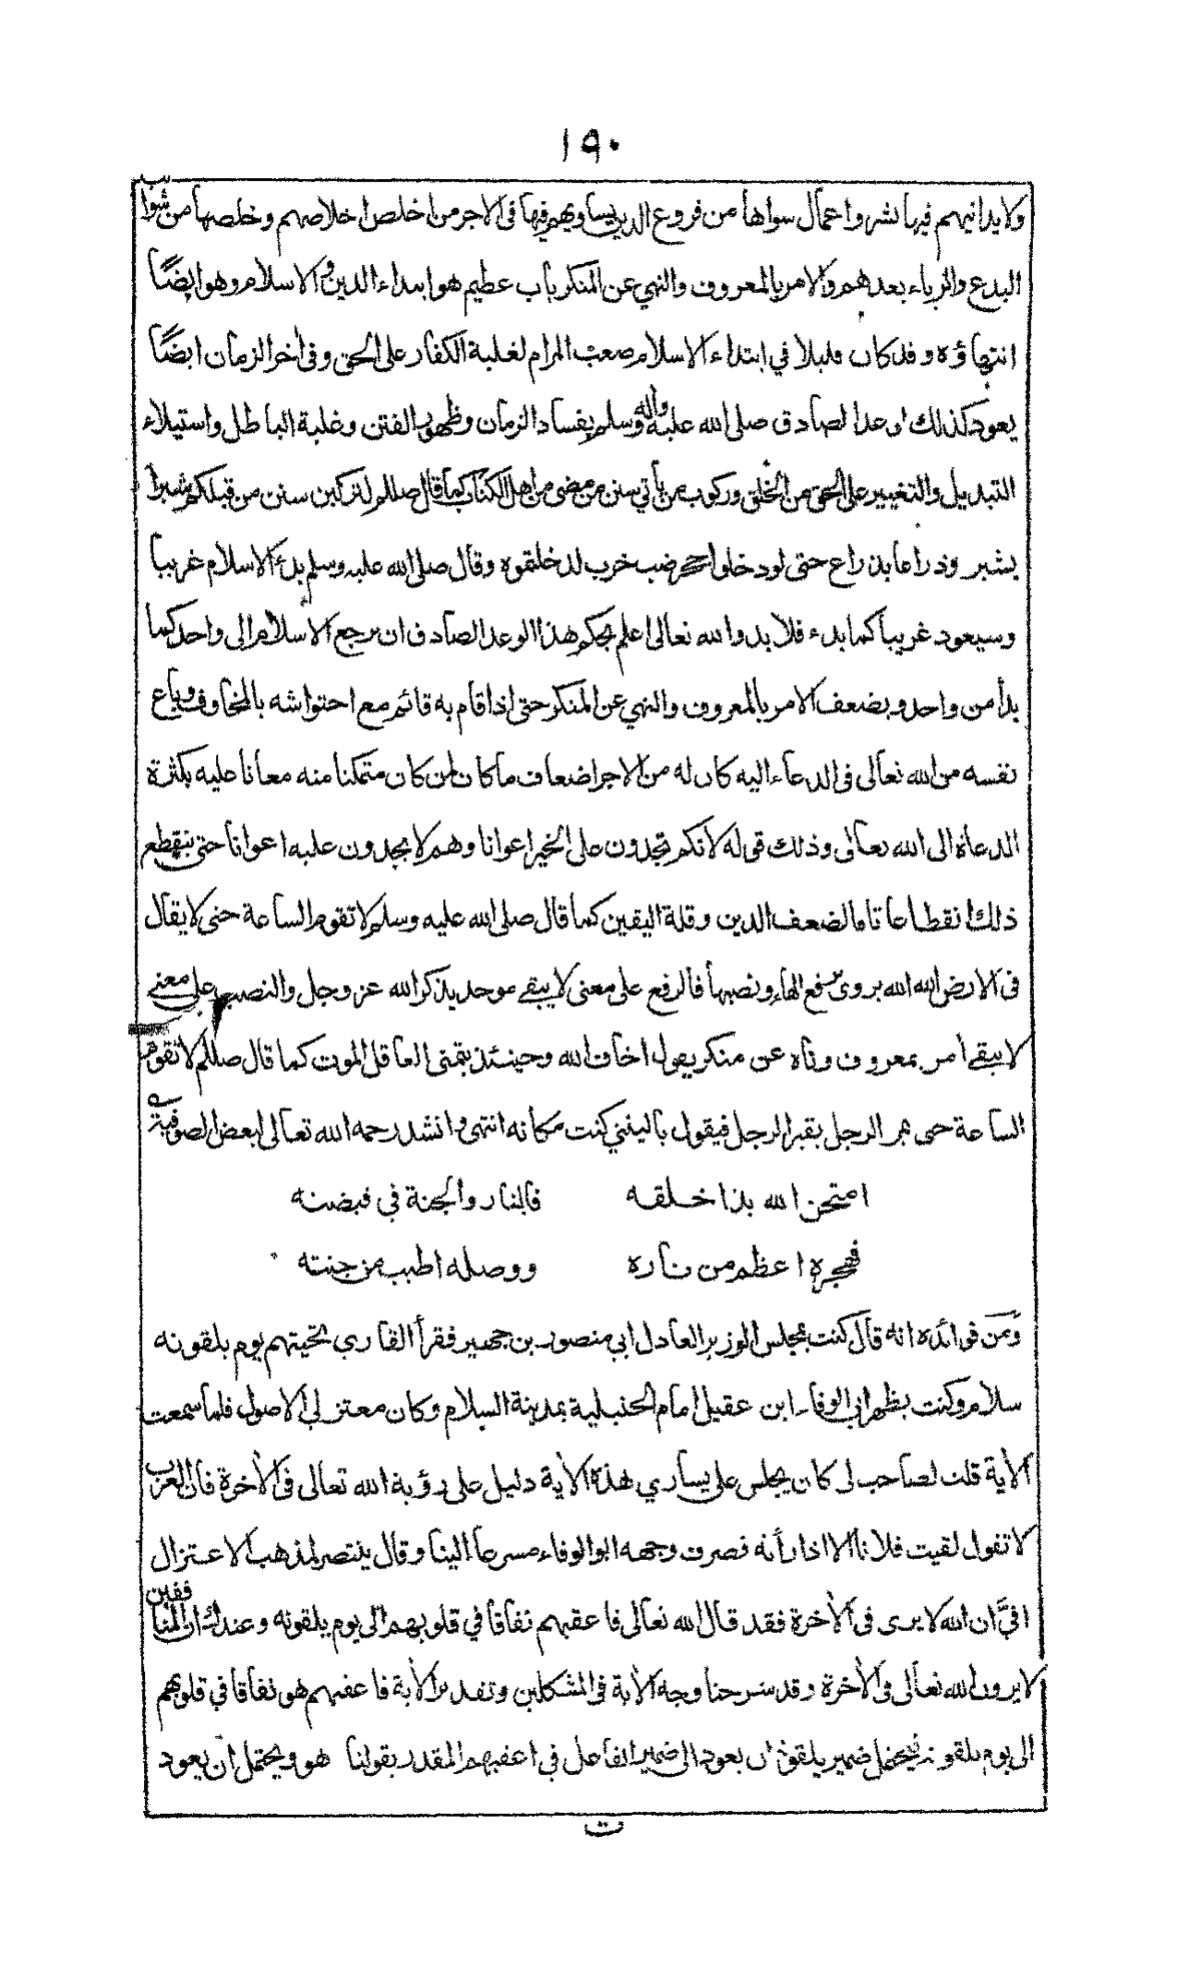 ١٩٠
ولايدانيهم فيها بشر واعمال سواها من فروع الدين يساويهم فيها فى الاجر من اخلص اخلاصهم وخلصها من شوائب
البدع والرياء بعدهم والامر بالمعروف والنهي عن المنكر باب عظيم هو ابتداء الدين والاسلام وهو ايضًا
انتهاؤه وقد كان قليلا في ابتداء الاسلام صعب المرام لغلبة الكفار على الحق وفى اخر الزمان ايضًا
يعود كذلك لوعد الصادق صلى الله عليه واله وسلم بفساد الزمان وظهور الفتن وغلبة الباطل واستيلاء
التبديل والتغيير على الحق من الخلق وركوب من يأتي سنن من مضى من اهل الكتاب كما قال صللم لتركبن سنن من قبلكم شبرا
بشبر وذراعا بذراع حتى لو دخلوا حجر ضب خرب لدخلتموه وقال صلى الله عليه وسلم بدئ الاسلام غريبا
وسيعود غريبا كما بدء فلا بد والله تعالى اعلم بحكم هذا الوعد الصادق ان يرجع الاسلام الى واحد كما
بدأ من واحد ويضعف الامر بالمعروف والنهي عن المنكر حتى اذا قام به قائم مع احتواشه بالمخاوف وباع
نفسه من الله تعالى فى الدعاء اليه كان له من الاجر اضعاف ما كان لمن كان متمكنا منه معانا عليه بكثرة
الدعاة الى الله تعالى وذلك قوله لانكم تجدون على الخير اعوانا وهم لا يجدون عليه اعوانا حتى ينقطع
ذلك انقطاعا تاما لضعف الدين وقلة اليقين كما قال صلى الله عليه وسلم لا تقوم الساعة حتى لا يقال
فى الارض الله الله يروى برفع الهاء ونصبها فالرفع على معنى لا يبقى موحد يذكر الله عز وجل والنصب على معنى
لا يبقى امر بمعروف وناه عن منكر يقول اخاف الله وحينئذ يتمنى العاقل الموت كما قال صللم لا تقوم
الساعة حتى يمر الرجل بقبر الرجل فيقول ياليتني كنت مكانه انتهى وانشد رحمه الله تعالى لبعض الصوفية
امتحن الله بذا خلقه فالنار والجنة في قبضته
فهجره اعظم من ناره ووصله اطيب من جنته
ومن فوائده انه قال كنت بمجلس الوزير العادل ابي منصور بن جهير فقرأ القاري تحيتهم يوم يلقونه
سلام وكنت بظهر ابى الوفاء ابن عقيل امام الحنبلية بمدينة السلام وكان معتزلي الاصول فلما سمعت
الاية قلت لصاحب لى كان يجلس على يساري هذه الاية دليل على رؤية الله تعالى فى الاخرة فان العرب
لا تقول لقيت فلانا الا اذا رأته فصرف وجهه ابو الوفاء مسرعا الينا وقال ينتصر لمذهب الاعتزال
افي ان الله لا يرى فى الاخرة فقد قال الله تعالى فاعقبهم نفاقا في قلوبهم الى يوم يلقونه وعندك ان المنافقين
لا يرون الله تعالى فى الاخرة وقد شرحنا وجه الاية فى المشكلين وتقدير الاية فاعقبهم هو نفاقا في قلوبهم
الى يوم يلقونه فيحتمل ضمير يلقونه ان يعود الى ضمير الفاعل في اعقبهم المقدر بقولنا هو ويحتمل ان يعود
ت